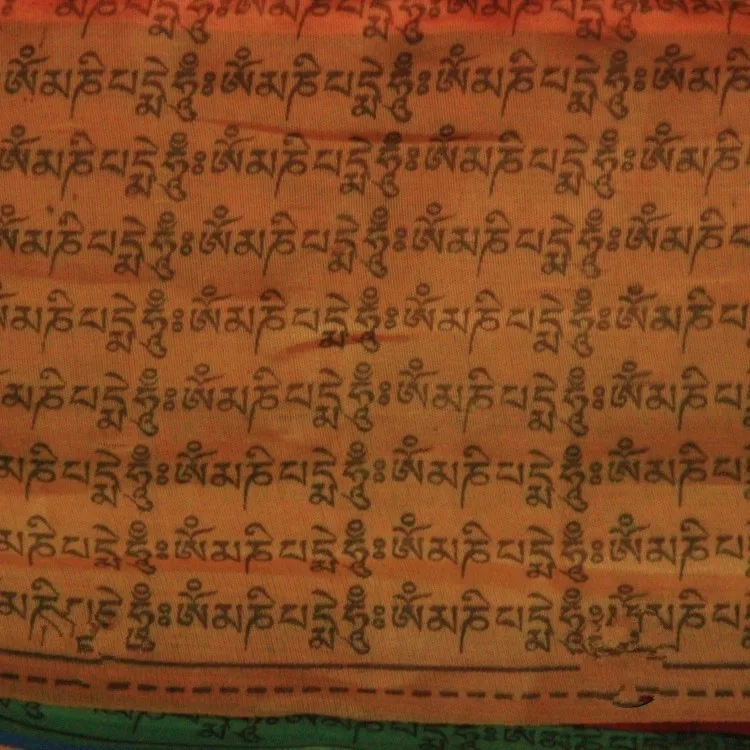 ཨོཾམཎིཔདྨེཧཱུྃ༔ཨོཾམཎིཔདྨེཧཱུྃ༔ཨོཾམཎིཔདྨེཧཱུྃ༔ཨོཾམཎི
ཨོཾམཎིཔདྨེཧཱུྃ༔ཨོཾམཎིཔདྨེཧཱུྃ༔ཨོཾམཎིཔདྨེཧཱུྃ༔ཨོཾམཎི
ཨོཾམཎིཔདྨེཧཱུྃ༔ཨོཾམཎིཔདྨེཧཱུྃ༔ཨོཾམཎིཔདྨེཧཱུྃ༔ཨོཾམཎིཔ
མཎིཔདྨེཧཱུྃ༔ཨོཾམཎིཔདྨེཧཱུྃ༔ཨོཾམཎིཔདྨེཧཱུྃ༔ཨོཾམཎིཔ
མཎིཔདྨེཧཱུྃ༔ཨོཾམཎིཔདྨེཧཱུྃ༔ཨོཾམཎིཔདྨེཧཱུྃ༔ཨོཾམཎིཔ
མཎིཔདྨེཧཱུྃ༔ཨོཾམཎིཔདྨེཧཱུྃ༔ཨོཾམཎིཔདྨེཧཱུྃ༔ཨོཾམཎིཔ
མཎིཔདྨེཧཱུྃ༔ཨོཾམཎིཔདྨེཧཱུྃ༔ཨོཾམཎིཔདྨེཧཱུྃ༔ཨོཾམཎིཔ
མཎིཔདྨེཧཱུྃ༔ཨོཾམཎིཔདྨེཧཱུྃ༔ཨོཾམཎིཔདྨེཧཱུྃ༔ཨོཾམཎིཔ